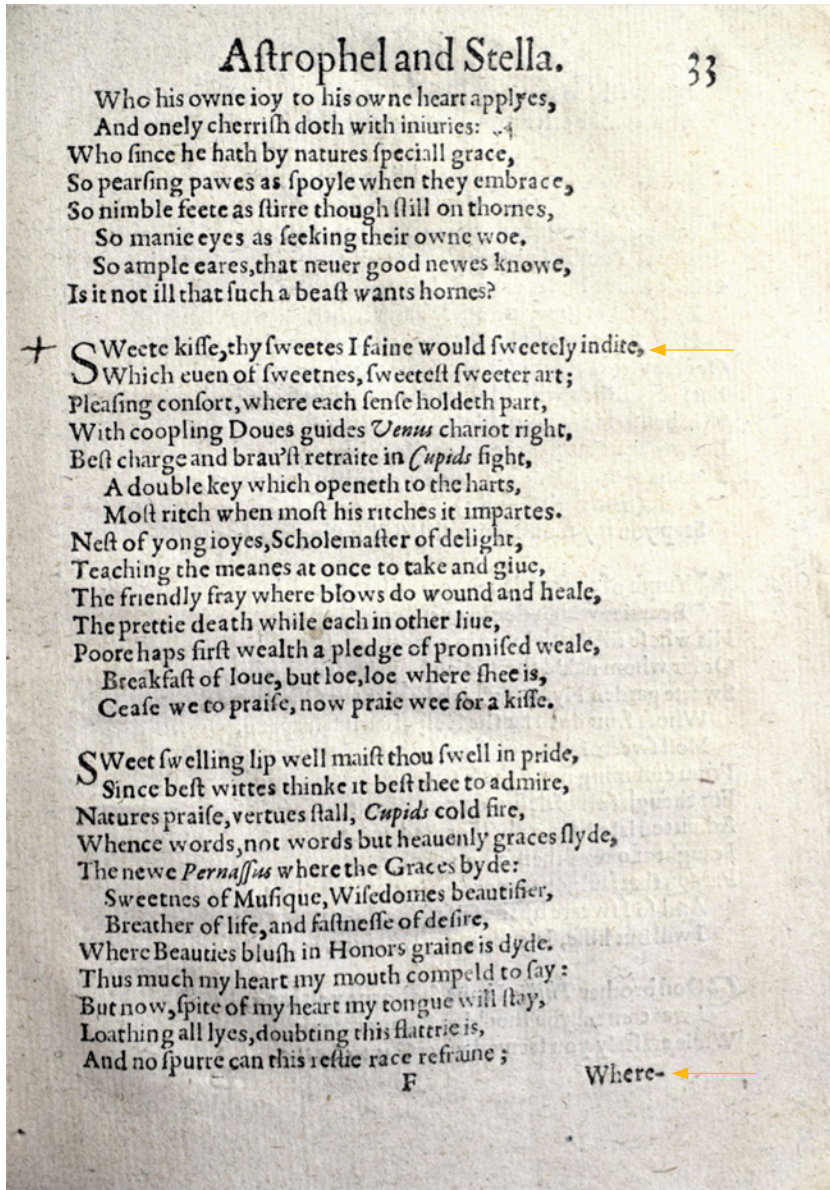 Aſtrophel and Stella. 33
Who his owne ioy to his owne heart applyes,
And onely cherriſh doth with iniuries:
Who ſince he hath by natures ſpeciall grace,
So pearſing pawes as ſpoyle when they embrace,
So nimble feete as ſtirre though ſtill on thornes,
So manie eyes as ſeeking their owne woe,
So ample eares, that neuer good newes knowe,
Is it not ill that ſuch a beaſt wants hornes?
SWeete kiſſe, thy ſweetes I faine would ſweetely indite,
Which euen of ſweetnes, ſweeteſt ſweeter art;
Pleaſing conſort, where each ſenſe holdeth part,
With coopling Doues guides Venus chariot right,
Beſt charge and brau'ſt retraite in Cupids fight,
A double key which openeth to the harts,
Moſt ritch when moſt his ritches it impartes.
Neſt of yong ioyes, Scholemaſter of delight,
Teaching the meanes at once to take and giue,
The friendly fray where blows do wound and heale,
The prettie death while each in other liue,
Poore haps firſt wealth a pledge of promiſed weale,
Breakfaſt of loue, but loe, loe where ſhee is,
Ceaſe we to praiſe, now praie wee for a kiſſe.
SWeet ſwelling lip well maiſt thou ſwell in pride,
Since beſt wittes thinke it beſt thee to admire,
Natures praiſe, vertues ſtall, Cupids cold fire,
Whence words, not words but heauenly graces ſlyde,
The newe Pernaſſus where the Graces byde:
Sweetnes of Muſique, Wiſedomes beautifier,
Breather of life, and faſtneſſe of deſire,
Where Beauties bluſh in Honors graine is dyde.
Thus much my heart my mouth compeld to ſay:
But now, ſpite of my heart my tongue will ſtay,
Loathing all lyes, doubting this flatterie is,
And no ſpurre can this reſtie race refraine;
F Where-